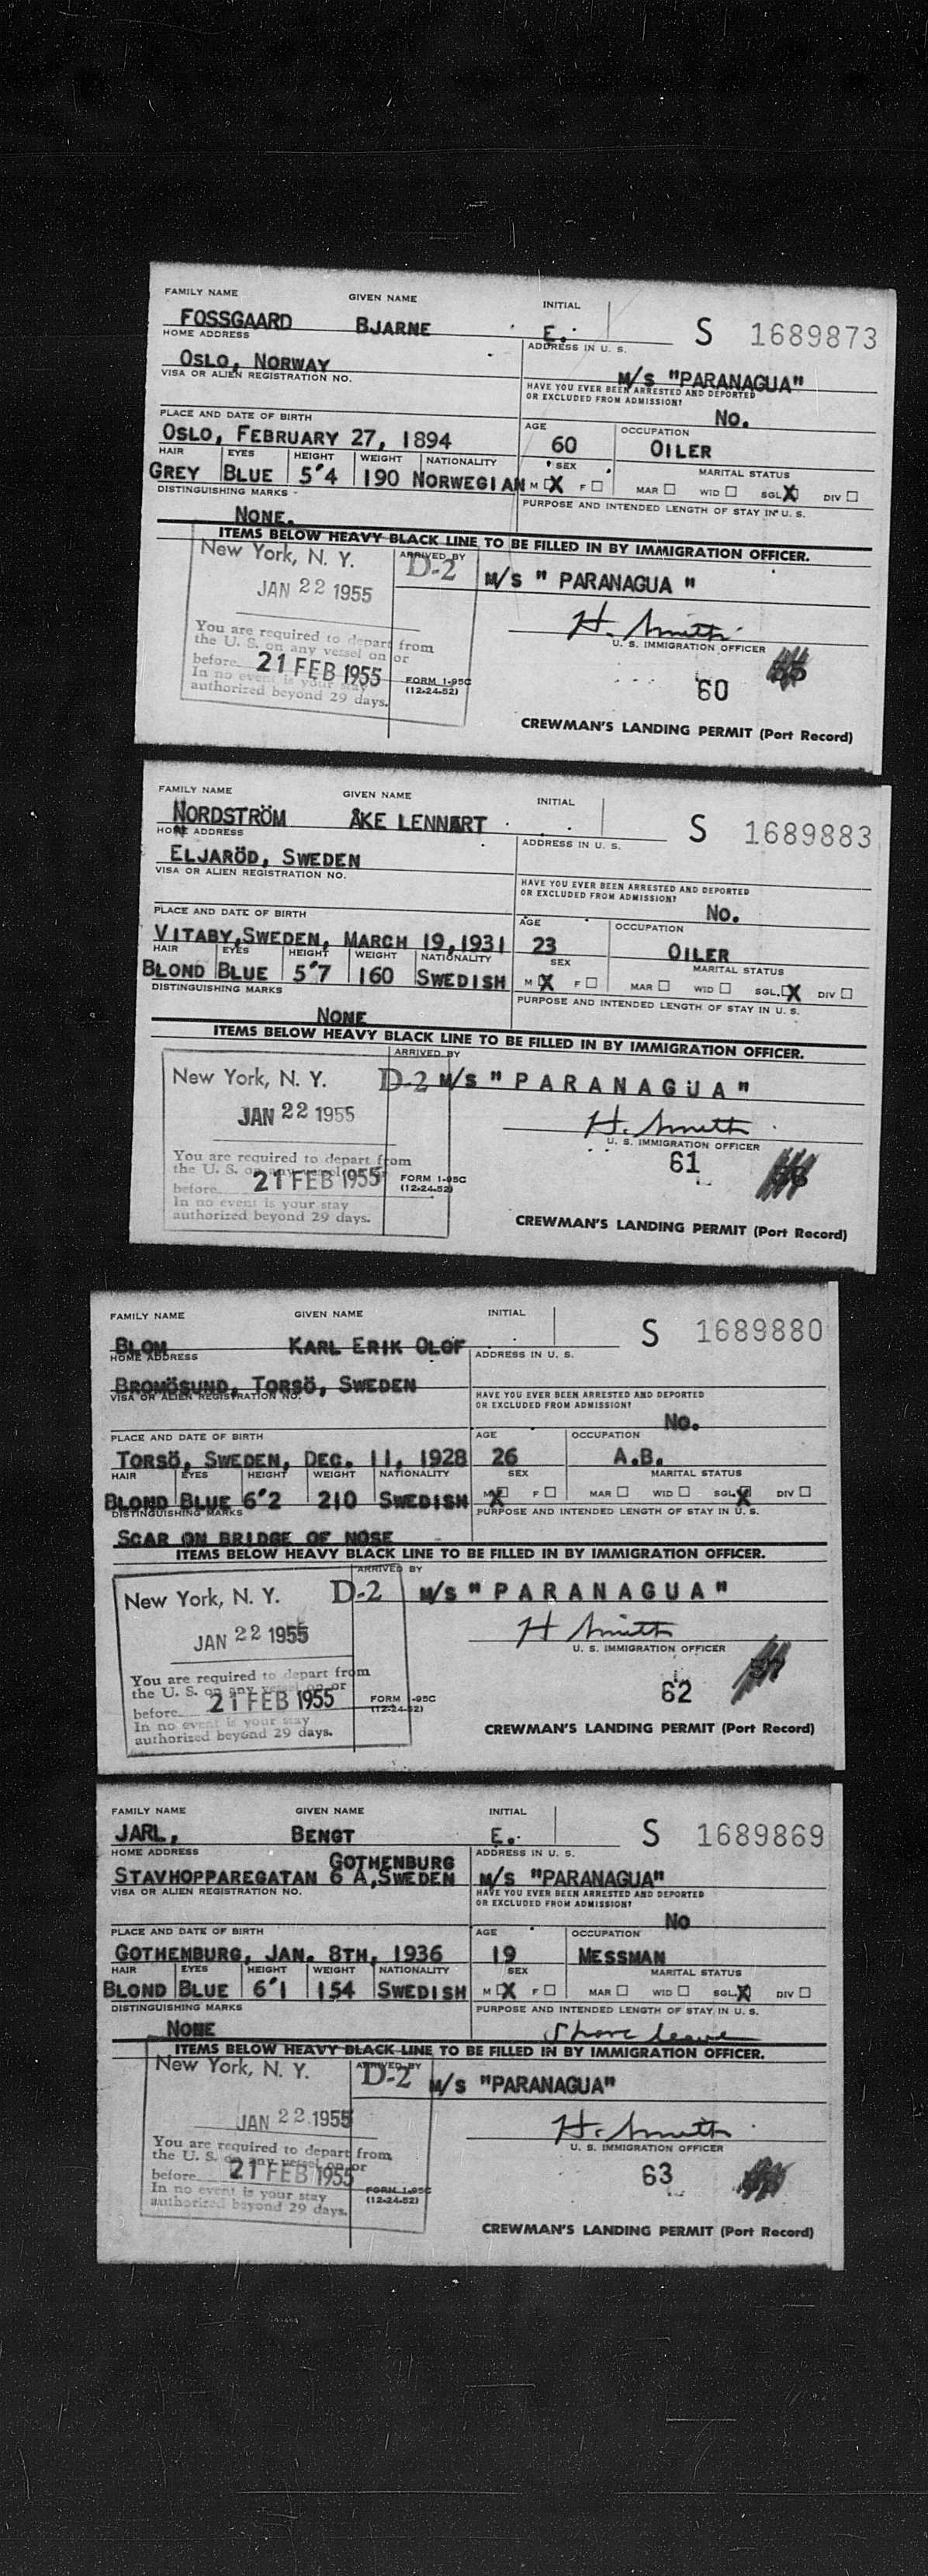 FAMILY NAME GIVEN NAME INITIAL
FOSSGAARD BJARNE E. S 1689873
HOME ADDRESS ADDRESS IN U. S.
OSLO, NORWAY M/S "PARANAGUA"
VISA OR ALIEN REGISTRATION NO. HAVE YOU EVER BEEN ARRESTED AND DEPORTED
OR EXCLUDED FROM ADMISSION?
No.
PLACE AND DATE OF BIRTH AGE OCCUPATION
OSLO, FEBRUARY 27, 1894 60 OILER
HAIR EYES HEIGHT WEIGHT NATIONALITY SEX MARITAL STATUS
GREY BLUE 5'4 190 NORWEGIAN M X F MAR WID SGL. X DIV
DISTINGUISHING MARKS PURPOSE AND INTENDED LENGTH OF STAY IN U. S.
NONE.
ITEMS BELOW HEAVY BLACK LINE TO BE FILLED IN BY IMMIGRATION OFFICER.
New York, N. Y. ARRIVED BY
D-2 M/S " PARANAGUA "
JAN 22 1955
H. Smith
U. S. IMMIGRATION OFFICER
You are required to depart from
the U. S. on any vessel on or
before 21 FEB 1955
In no event is your stay
authorized beyond 29 days.
FORM I-95C
(12-24-52)
60
CREWMAN'S LANDING PERMIT (Port Record)
FAMILY NAME GIVEN NAME INITIAL
NORDSTRÖM ÅKE LENNART S 1689883
HOME ADDRESS ADDRESS IN U. S.
ELJARÖD, SWEDEN
VISA OR ALIEN REGISTRATION NO. HAVE YOU EVER BEEN ARRESTED AND DEPORTED
OR EXCLUDED FROM ADMISSION?
No.
PLACE AND DATE OF BIRTH AGE OCCUPATION
VITABY, SWEDEN, MARCH 19, 1931 23 OILER
HAIR EYES HEIGHT WEIGHT NATIONALITY SEX MARITAL STATUS
BLOND BLUE 5'7 160 SWEDISH M X F MAR WID SGL. X DIV
DISTINGUISHING MARKS PURPOSE AND INTENDED LENGTH OF STAY IN U. S.
NONE
ITEMS BELOW HEAVY BLACK LINE TO BE FILLED IN BY IMMIGRATION OFFICER.
ARRIVED BY
New York, N. Y. D-2 M/S " PARANAGUA "
JAN 22 1955
H. Smith
U. S. IMMIGRATION OFFICER
You are required to depart from
the U. S. on any vessel on or
before 21 FEB 1955
In no event is your stay
authorized beyond 29 days.
FORM I-95C
(12-24-52)
61
CREWMAN'S LANDING PERMIT (Port Record)
FAMILY NAME GIVEN NAME INITIAL
BLOM KARL ERIK OLOF S 1689880
HOME ADDRESS ADDRESS IN U. S.
BROMÖSUND, TORSÖ, SWEDEN
VISA OR ALIEN REGISTRATION NO. HAVE YOU EVER BEEN ARRESTED AND DEPORTED
OR EXCLUDED FROM ADMISSION?
No.
PLACE AND DATE OF BIRTH AGE OCCUPATION
TORSÖ, SWEDEN, DEC. 11, 1928 26 A.B.
HAIR EYES HEIGHT WEIGHT NATIONALITY SEX MARITAL STATUS
BLOND BLUE 6'2 210 SWEDISH M X F MAR WID SGL. X DIV
DISTINGUISHING MARKS PURPOSE AND INTENDED LENGTH OF STAY IN U. S.
SCAR ON BRIDGE OF NOSE
ITEMS BELOW HEAVY BLACK LINE TO BE FILLED IN BY IMMIGRATION OFFICER.
ARRIVED BY
New York, N. Y. D-2 M/S " PARANAGUA "
JAN 22 1955
H Smith
U. S. IMMIGRATION OFFICER
You are required to depart from
the U. S. on any vessel on or
before 21 FEB 1955
In no event is your stay
authorized beyond 29 days.
FORM I-95C
(12-24-52)
62
CREWMAN'S LANDING PERMIT (Port Record)
FAMILY NAME GIVEN NAME INITIAL
JARL, BENGT E. S 1689869
HOME ADDRESS ADDRESS IN U. S.
GOTHENBURG
STAVHOPPAREGATAN 6 A, SWEDEN M/S "PARANAGUA"
VISA OR ALIEN REGISTRATION NO. HAVE YOU EVER BEEN ARRESTED AND DEPORTED
OR EXCLUDED FROM ADMISSION?
No
PLACE AND DATE OF BIRTH AGE OCCUPATION
GOTHENBURG, JAN. 8TH, 1936 19 MESSMAN
HAIR EYES HEIGHT WEIGHT NATIONALITY SEX MARITAL STATUS
BLOND BLUE 6'1 154 SWEDISH M X F MAR WID SGL. X DIV
DISTINGUISHING MARKS PURPOSE AND INTENDED LENGTH OF STAY IN U. S.
NONE Shore leave
ITEMS BELOW HEAVY BLACK LINE TO BE FILLED IN BY IMMIGRATION OFFICER.
New York, N. Y. ARRIVED BY
D-2 M/S "PARANAGUA"
JAN 22 1955
H. Smith
U. S. IMMIGRATION OFFICER
You are required to depart from
the U. S. on any vessel on or
before 21 FEB 1955
In no event is your stay
authorized beyond 29 days.
FORM I-95C
(12-24-52)
63
CREWMAN'S LANDING PERMIT (Port Record)